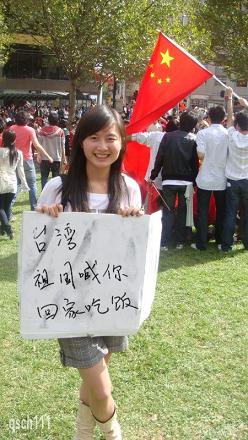 台湾
祖国喊你
回家吃饭
qsch111